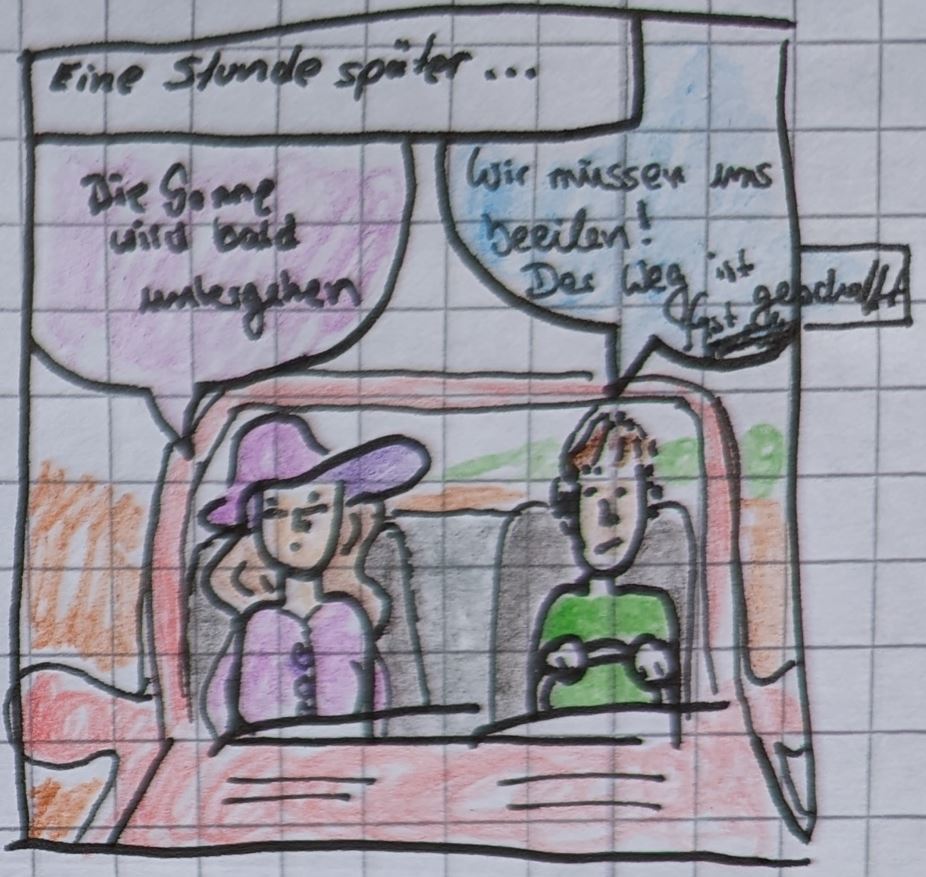 Eine Stunde später...
Die Sonne
wird bald
untergehen
Wir müssen uns
beeilen!
Der Weg ist
fast geschafft